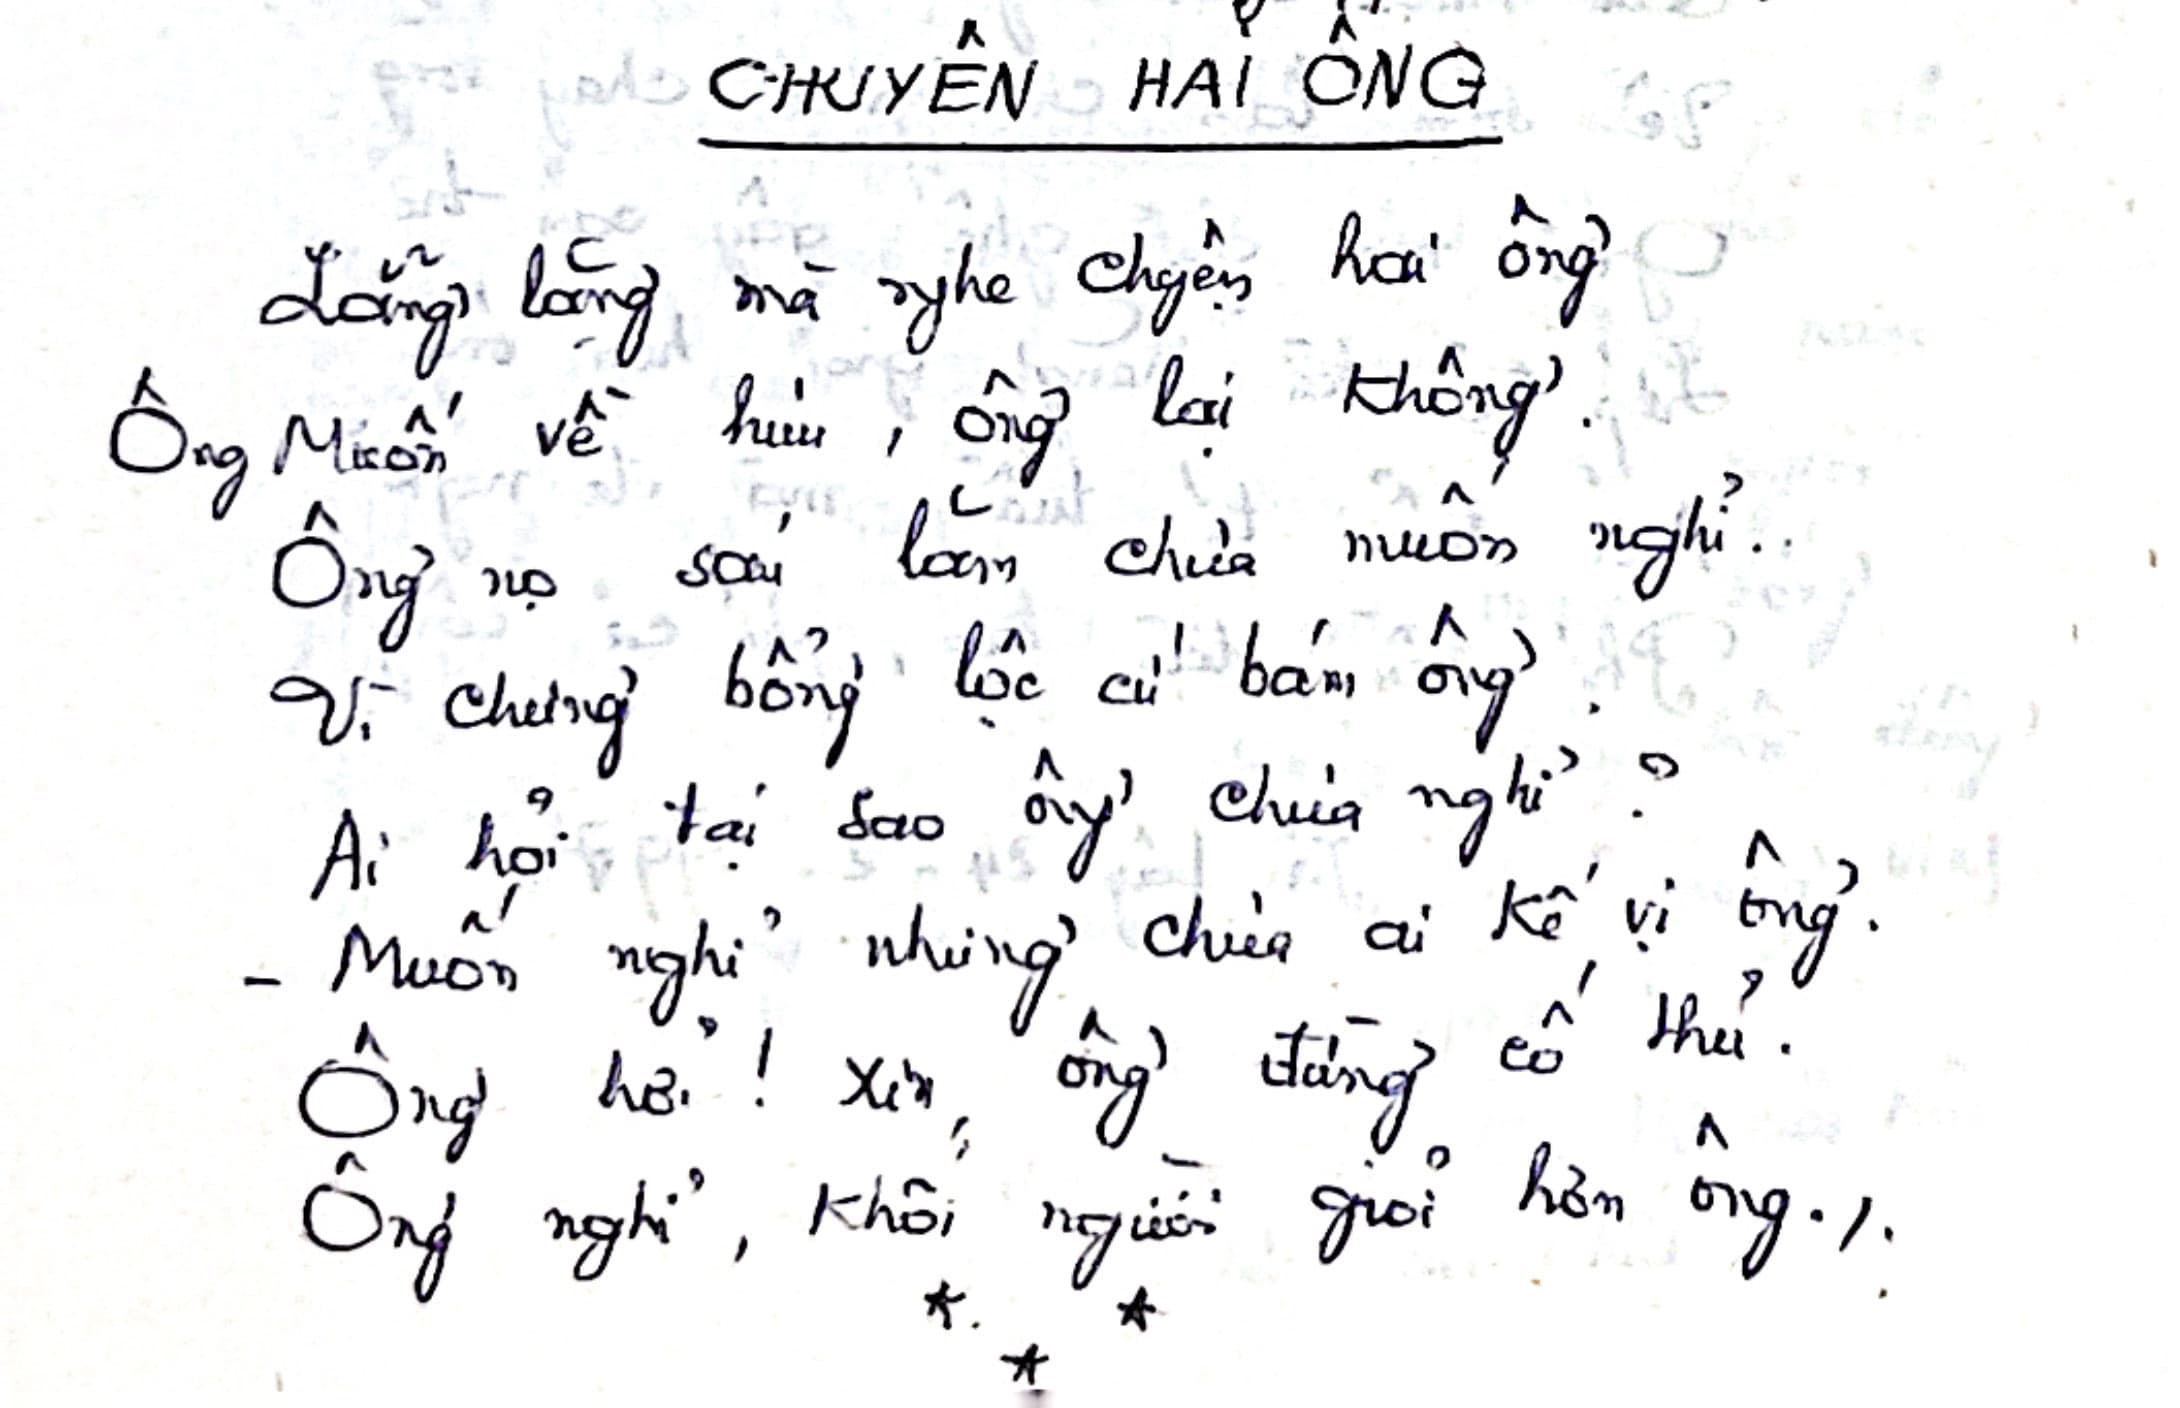 CHUYÊN HAI ÔNG
Lẵng lặng mà nghe chyện hai ông
Ông Muốn về hưu, ông lại không.
Ông nọ sau lăm chưa muốn nghỉ..
Vì chưng bổng lộc cứ bám ông.
Ai hỏi tại sao ông chưa nghỉ?
- Muốn nghỉ nhưng chưa ai kế vị ông.
Ông hỡi! Xin, ông đừng cố thử.
Ông nghỉ, khối người giỏi hơn ông./.